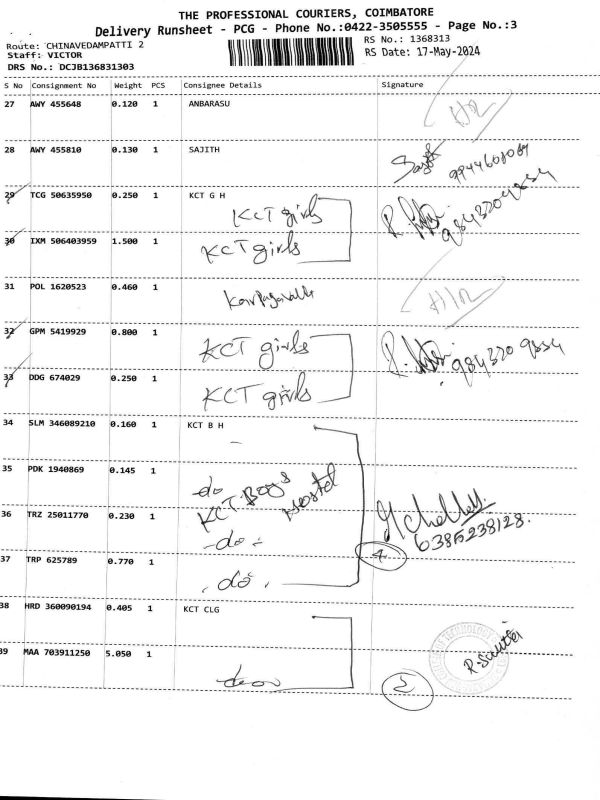 THE PROFESSIONAL COURIERS, COIMBATORE
Delivery Runsheet - PCG - Phone No.:0422-3505555 - Page No.:3
Route: CHINAVEDAMPATTI 2
RS No.: 1368313
Staff: VICTOR
RS Date: 17-May-2024
DRS No.: DCJB136831303
S No Consignment No Weight PCS Consignee Details Signature
27 AWY 455648 0.120 1 ANBARASU
28 AWY 455810 0.130 1 SAJITH
9944608089
29 TCG 50635950 0.250 1 KCT G H
KCT girls
9843209834
30 IXM 506403959 1.500 1 KCT girls
31 POL 1620523 0.460 1
32 GPM 5419929 0.800 1 KCT girls
984320 9834
33 DDG 674029 0.250 1 KCT girls
34 SLM 346089210 0.160 1 KCT B H
35 PDK 1940869 0.145 1 do
KCT Boys Hostel
36 TRZ 25011770 0.230 1 -do-
6385238128.
4
37 TRP 625789 0.770 1 do
38 HRD 360090194 0.405 1 KCT CLG
39 MAA 703911250 5.050 1
2